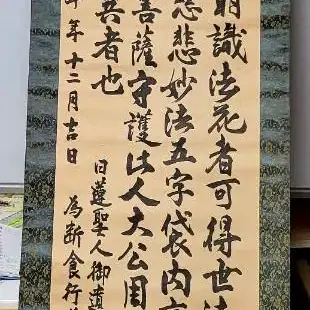 識法花者可得世法
慈悲妙法五字袋内
菩薩守護此人大公周
異者也
日蓮聖人御遺
年十二月吉日
為断食行